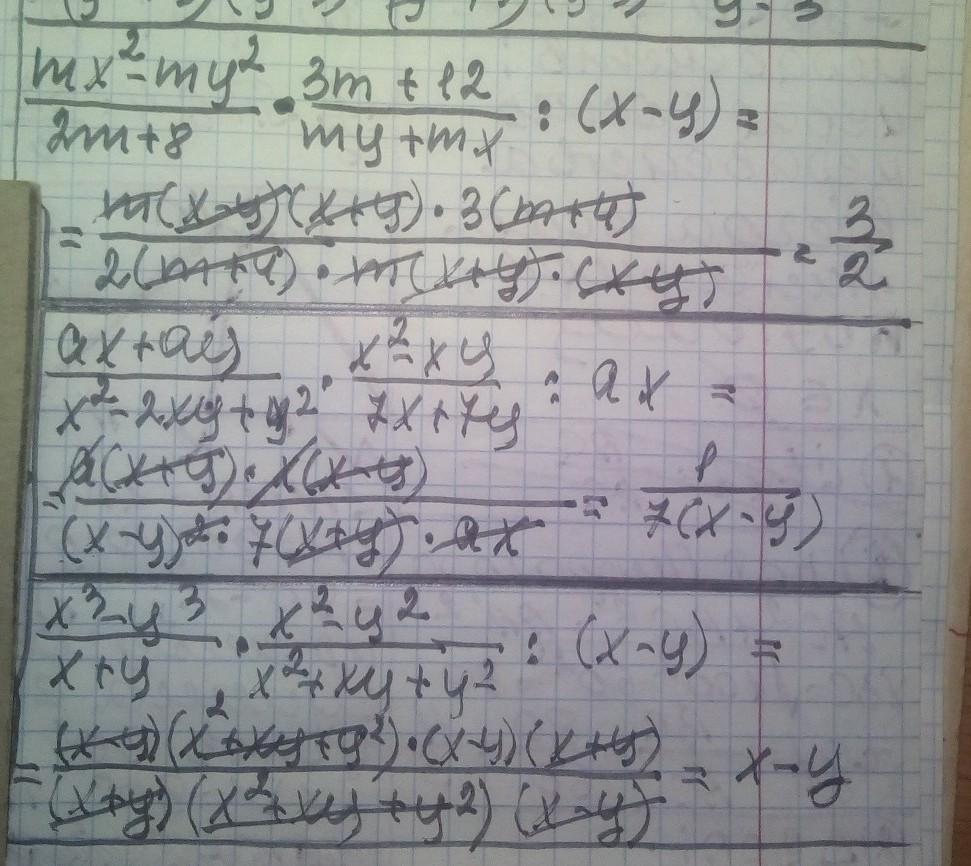 y - 3
mx² - my² / 2m + 8 · 3m + 12 / my + mx : (x - y) =
= m(x - y)(x + y) · 3(m + 4) / 2(m + 4) · m(x + y) · (x y) = 3/2
ax + ay / x² - 2xy + y² · x² - xy / 7x + 7y : ax =
= a(x + y) · x(x - y) / (x - y)² · 7(x + y) · ax = 1 / 7(x - y)
x³ - y³ / x + y · x² - y² / x² + xy + y² : (x - y) =
= (x - y)(x² + xy + y²) · (x - y)(x + y) / (x + y)(x² + xy + y²)(x - y) = x - y